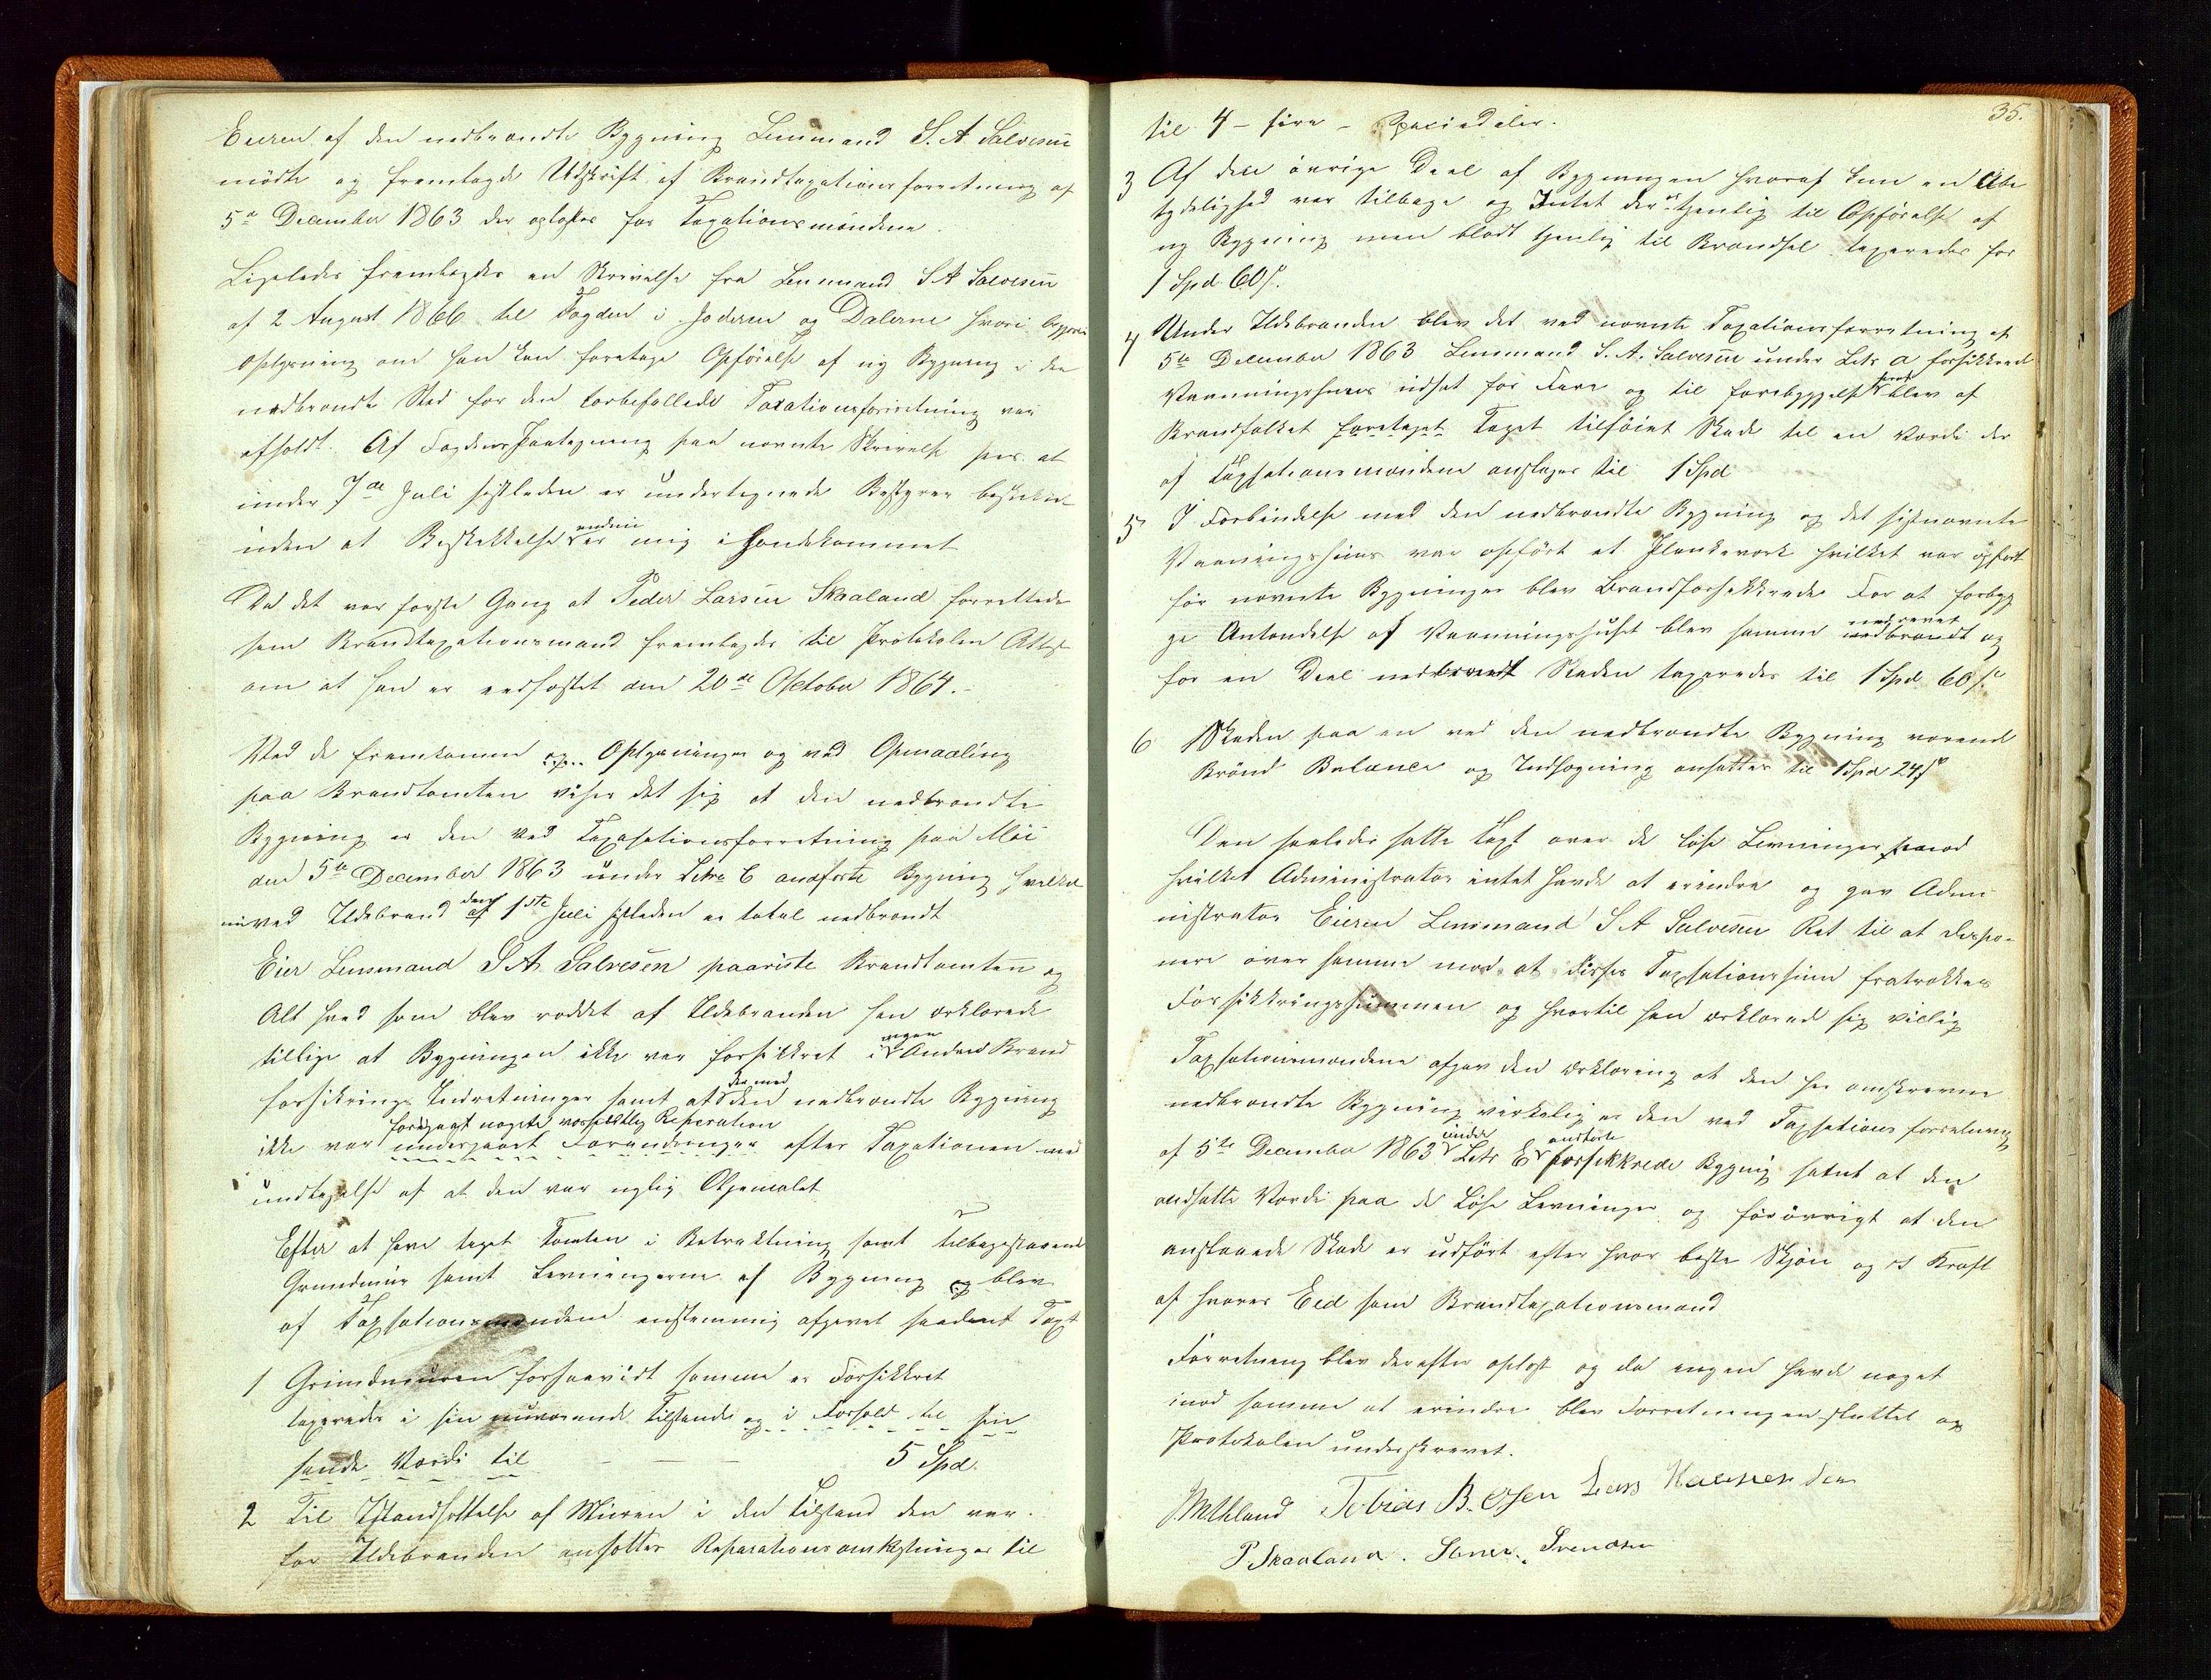 Eieren af den nedbrændte Bygning Lensmand S. A. Salvesen
mödte og fremlagde Udskrift af Brandtaxationsforretning af
5te December 1863 der oplæstes for Taxationsmændene.
Ligeledes fremlagdes en Skrivelse fra Lensmand S A Salvesen
af 2 August 1866 til Fogden i Jæderen og Dalerne hvori begjæres
Oplysning om han kan foretage Opförelse af ny Bygning i den
nedbrændte Sted før den anbefallede Taxationsforretning var
afholdt. Af Fogdens Paategning paa nævnte Skrivelse sees at
under 7de Juli sistleden er undertegnede Bestyrer beskikket
uden at Beskikkelse endnu er mig ihændekommet
Da det var første Gang at Peder Larsen Skaaland forrettede
som Brandtaxationsmand fremlagdes til Protokolen Attest
om at han er eedfæstet den 20de Oktober 1864.-
Ved de fremkomne Oplysninger og ved Opmaaling
paa Brandtomten viser det sig at den nedbrændte
Bygning er den ved Taxationsforretning paa Moi
den 5te December 1863 under Litra E andførte Bygning hvilken
nu ved Ildebrand den 1ste Juli sistleden er total nedbrændt
Eier Lensmand S A. Salvesen paaviste Brandtomten og
Alt hvad som blev reddet af Ildebranden han erklærede
tillige at Bygningen ikke var forsikkret i nogen Anden Brand
forsikrings Indretninger samt at den nedbrændte Bygning
foregaaet nogen væsentlig Reperation
ikke var undergaaet Forandringer efter Taxationen med
undtagelse af at den var nylig Opmalet
Efter at have taget Tomten i Betraktning samt tilbagestaaende
Grundmur samt Levningerne af Bygning og blev
af Taxsationsmændene enstemmig afgivet saadant Taxt
1 Grundmuren forsaavidt samme er Forsikkret
taxeredes i sin nuværende Tilstand og i Forhold til sin
sande Værdi til - - - 5 Spd.
2 Til Istandsættelse af Muren i den Tilstand den var
før Ildebranden ansættes Reparationsomkostninger til
35.
til 4 - fire - Speciedaler.
3 Af den övrige Deel af Bygningen hvoraf kun en Ube
tydelighed var tilbage og Intet der er tjenlig til Opförelse af
ny Bygning men blodt tjenlig til Brændsel taxeredes for
1 Spd 60 s.
4 Under Ildebranden blev det ved nævnte Taxationsforretning af
5te December 1863 Lensmand S. A. Salvesen under Litr a forsikkrede
Vaaningshuus udsat for Fare og til forebyggelse heraf blev af
Brandfolket foretaget Taget tilføiet Skade til en Værdi der
af Taxsationsmændene anslages til 1 Spd
5 I Forbindelse med den nedbrændte Bygning og det sistnævnte
Vaaningshuus var opfört et Plankeværk hvilket var opfört
før nævnte Bygninger blev Brandforsikkrede For at forbyg
ge Antændelse af Vaaningshuset blev samme nedrevet nedbrændt og
for en Deel nedbrændt Skaden taxeredes til 1 Spd 60 s.
6 Skaden paa en ved den nedbrændte Bygning værende
Brönd Balance og Indhegning ansættes til 1 Spd 24 s
Den saaledes satte Taxt over de løse Levninger imod
hvilket Administrator intet havde at erindre og gav Admi
nistrator Eieren Lensmand S A Salvesen Ret til at dispo-
nere over samme mod at disses Taxsationssum fratrækkes
Forsikkringssummen og hvortil han erklærede sig villig
Taxsationsmændene afgav den Erklæring at den her omskrevne
nedbrændte Bygning virkelig er den ved Taxsations forretning
af 5te December 1863 under Litr E anførte forsikkrede Bygnig samt at den
andsatte Værdi paa de Løse Levninger og forövrigt at den
anslaaede Skade er udfört efter hvor beste Skjön og i Kraft
af hvores Eed som Brandtaxationsmænd
Forretning blev derefter oplæst og da ingen havde noget
imod samme at erindre blev Forretningen sluttet og
Protokolen underskrevet.
Tobias B. Osen Lars
P. Skaaland. Svendsen